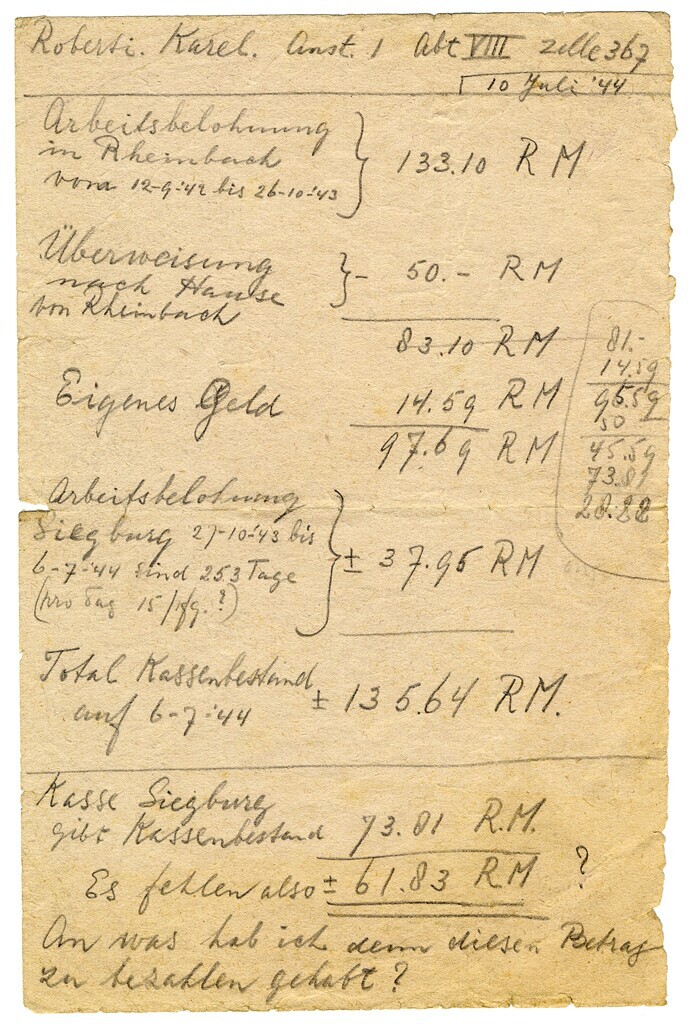 Roberti. Karel. Anst. 1 Abt VIII zelle 367
10 Juli '44
Arbeitsbelohnung
in Rheinbach
vom 12-9-'42 bis 26-10-'43
133.10 RM
Überweisung
nach Hause
von Rheinbach
- 50.- RM
83.10 RM
Eigenes Geld
14.59 RM
97.69 RM
81.-
14.59
95.59
50
45.59
73.81
28.22
Arbeitsbelohnung
Siegburg 27-10-'43 bis
6-7-'44 sind 253 Tage
(pro dag 15 Pfg.?)
± 37.95 RM
Total Kassenbestand
auf 6-7-'44
± 135.64 RM.
Kasse Siegburg
gibt Kassenbestand 73.81 R.M.
Es fehlen also ± 61.83 RM ?
An was hab ich denn diesen Betrag
zu bezahlen gehabt?